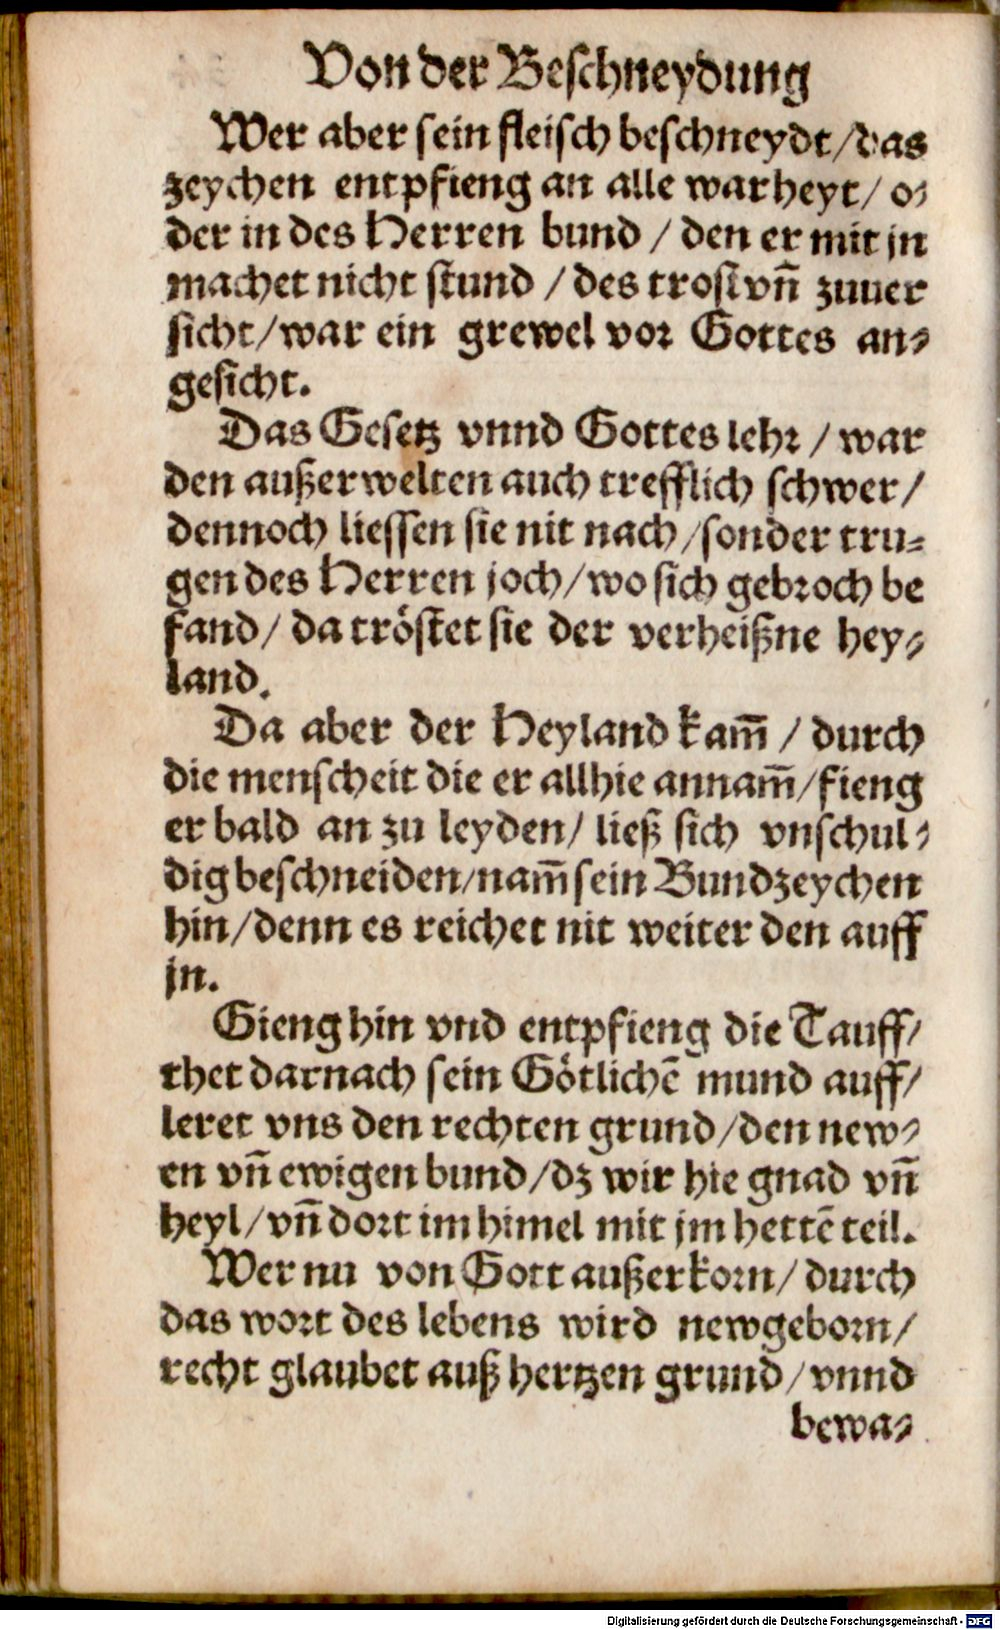 Von der Beschneydung
Wer aber sein fleisch beschneydt / das
zeychen entpfieng an alle warheyt / o⸗
der in des Herren bund / den er mit jn
machet nicht stund / des trost vn̄ zuuer
sicht / war ein grewel vor Gottes an⸗
gesicht.
Das Gesetz vnnd Gottes lehr / war
den außerwelten auch trefflich schwer /
dennoch liessen sie nit nach / sonder tru⸗
gen des Herren joch / wo sich gebroch be
fand / da tröstet sie der verheißne hey⸗
land.
Da aber der Heyland kam̄ / durch
die menscheit die er allhie annam̄ / fieng
er bald an zu leyden / ließ sich vnschul⸗
dig beschneiden / nam̄ sein Bundzeychen
hin / denn es reichet nit weiter den auff
jn.
Gieng hin vnd entpfieng die Tauff /
thet darnach sein Götlichē mund auff /
leret vns den rechten grund / den new⸗
en vn̄ ewigen bund / dz wir hie gnad vn̄
heyl / vn̄ dort im himel mit jm hettē teil.
Wer nu von Gott außerkorn / durch
das wort des lebens wird newgeborn /
recht glaubet auß hertzen grund / vnnd
bewa⸗
Digitalisierung gefördert durch die Deutsche Forschungsgemeinschaft - DFG